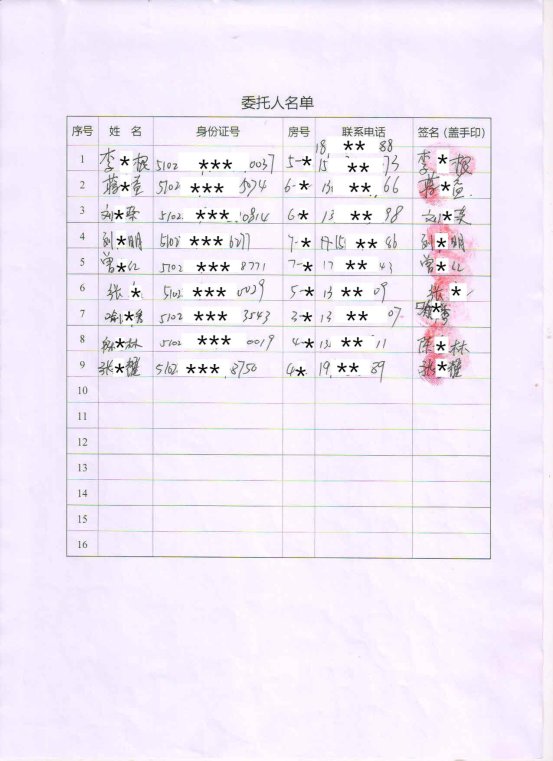 委托人名单
序号 姓 名 身份证号 房号 联系电话 签名（盖手印）
18 ** 88
1 李*根 5102 *** 0037 5-* 15 ** 73 李*根
2 蒋*萱 5102 *** 5074 6-* 13 ** 66 蒋*萱
3 刘*荣 5102 *** 0814 6-* 13 ** 98 刘*荣
4 刘*明 5102 *** 6277 7-* ** 46 刘*明
5 曾*红 5102 *** 8771 7-* 17 ** 43 曾*红
6 张* 5102 *** 0039 5-* 13 ** 09 张*
7 喻* 5102 *** 3543 3-* 13 ** 07 喻*
8 陈*林 5102 *** 0019 4-* 13 ** 11 陈*林
9 张*耀 5102 *** 8750 4-* 19 ** 89 张*耀
10
11
12
13
14
15
16